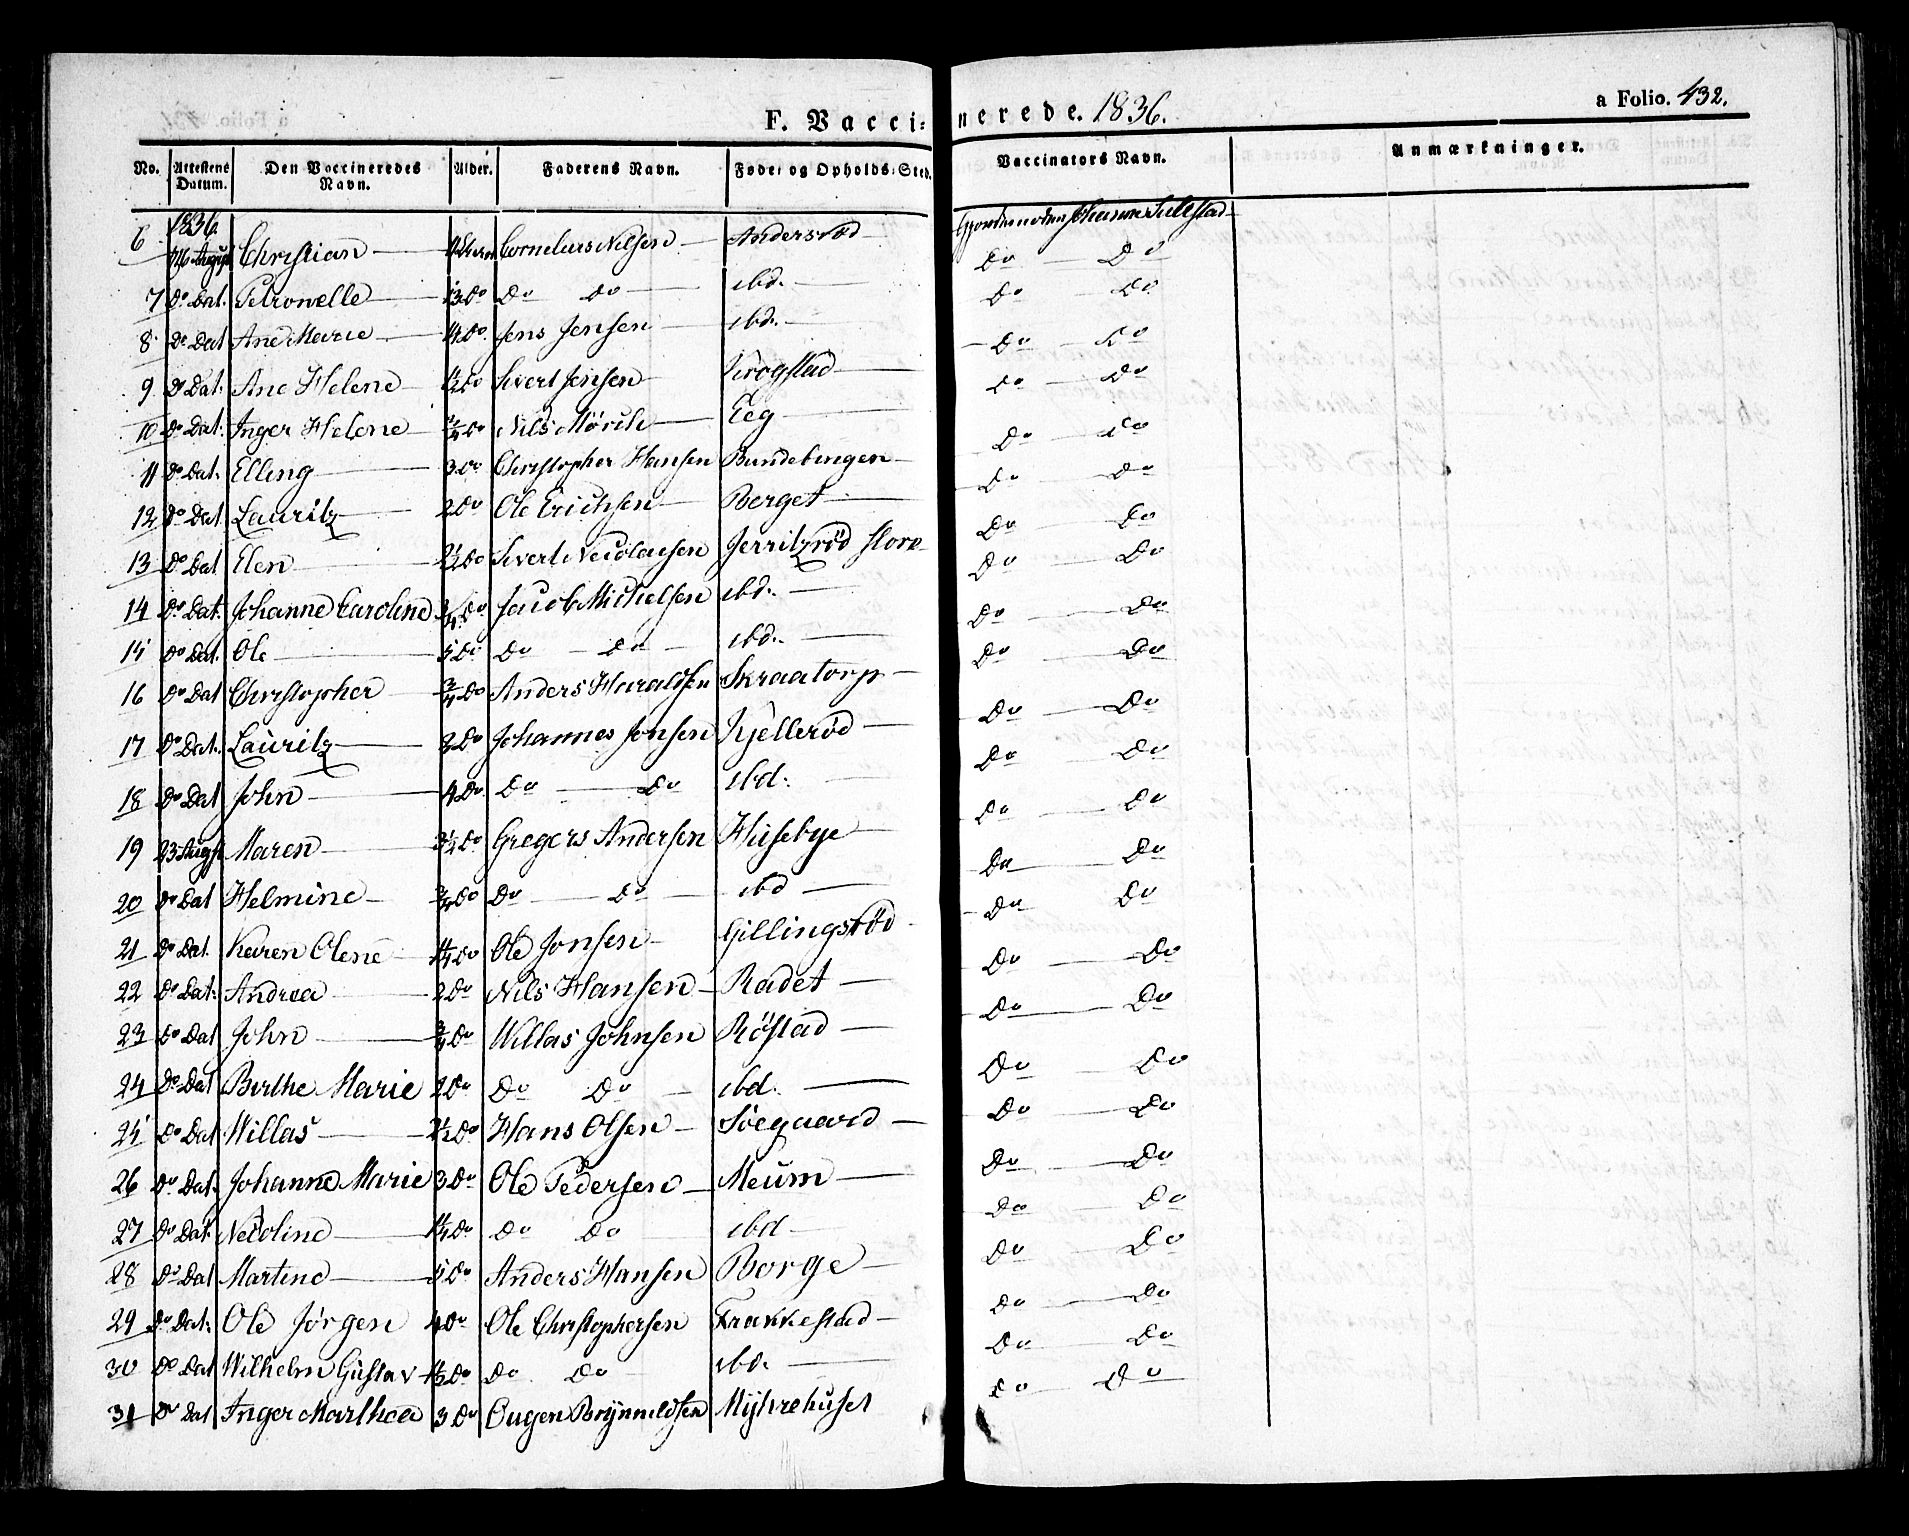 F. Vaccinerede. 1836.
a Folio. 432.
No. Attestens Datum. Den Vaccineredes Navn. Alder. Faderens Navn. Føde- og Opholds-Sted. Vaccinators Navn. Anmærkninger.
1836
6 16 August Christian Cornelius Nilsen Andersrød Johanne
7 Do Dat. Petronelle Do Do Do ibd. Do Do
8 Do Dat Ane Marie Do Jens Jensen ibd. Do Do
9 Do Dat. Ane Helene 1/2 Do Sivert Jensen Krogstad Do Do
10 Do Dat. Inger Helene 3/4 Do Nils Eeg Do Do
11 Do Dat. Elling 3 Do Christopher Hansen Bundebingen Do Do
12 Do Dat Lauritz 2 Do Ole Erichsen Berget Do Do
13 Do Dat Elen 2 1/2 Do Sivert Nicolaisen Jerritzrød store Do Do
14 Do Dat. Johanne Caroline 3/4 Do Jacob Michelsen ibd. Do Do
15 Do Dat. Ole 5 Do Do Do ibd. Do Do
16 Do Dat Christopher 3/4 Do Anders Haraldsen Skraatorp Do Do
17 Do Dat. Lauritz 2 Do Johannes Jonsen Kjellerød Do Do
18 Do Dat John 4 Do Do Do ibd. Do Do
19 23 Augst Maren 3 1/2 Do Gregers Andersen Husebye Do Do
20 Do Dat Helmine 3/4 Do Do Do ibd Do Do
21 Do Dat. Karen Olene 1 1/4 Do Ole Jonsen Gillingsrød Do Do
22 Do Dat. Andrea 2 Do Nils Hansen Radet Do Do
23 Do Dat John 3/4 Do Willas Johnsen Røstad Do Do
24 Do Dat Birthe Marie 2 Do Do Do ibd. Do Do
25 Do Dat Willas 2 1/2 Do Hans Olsen Søegaard Do Do
26 Do Dat. Johanne Marie 3 Do Ole Pedersen Meum Do Do
27 Do Dat. Nicoline 1 1/4 Do Do Do ibd Do Do
28 Do Dat Martine 5 Do Anders Hansen Borge Do Do
29 Do Dat. Ole Jørgen 4 Do Ole Christophersen Frakkestad Do Do
30 Do Dat Wilhelm Gustav 1 1/2 Do Do Do ibd. Do Do
31 Do Dat Inger Marthea 3 Do Eugen Brynnildsen Myhrehuset Do Do